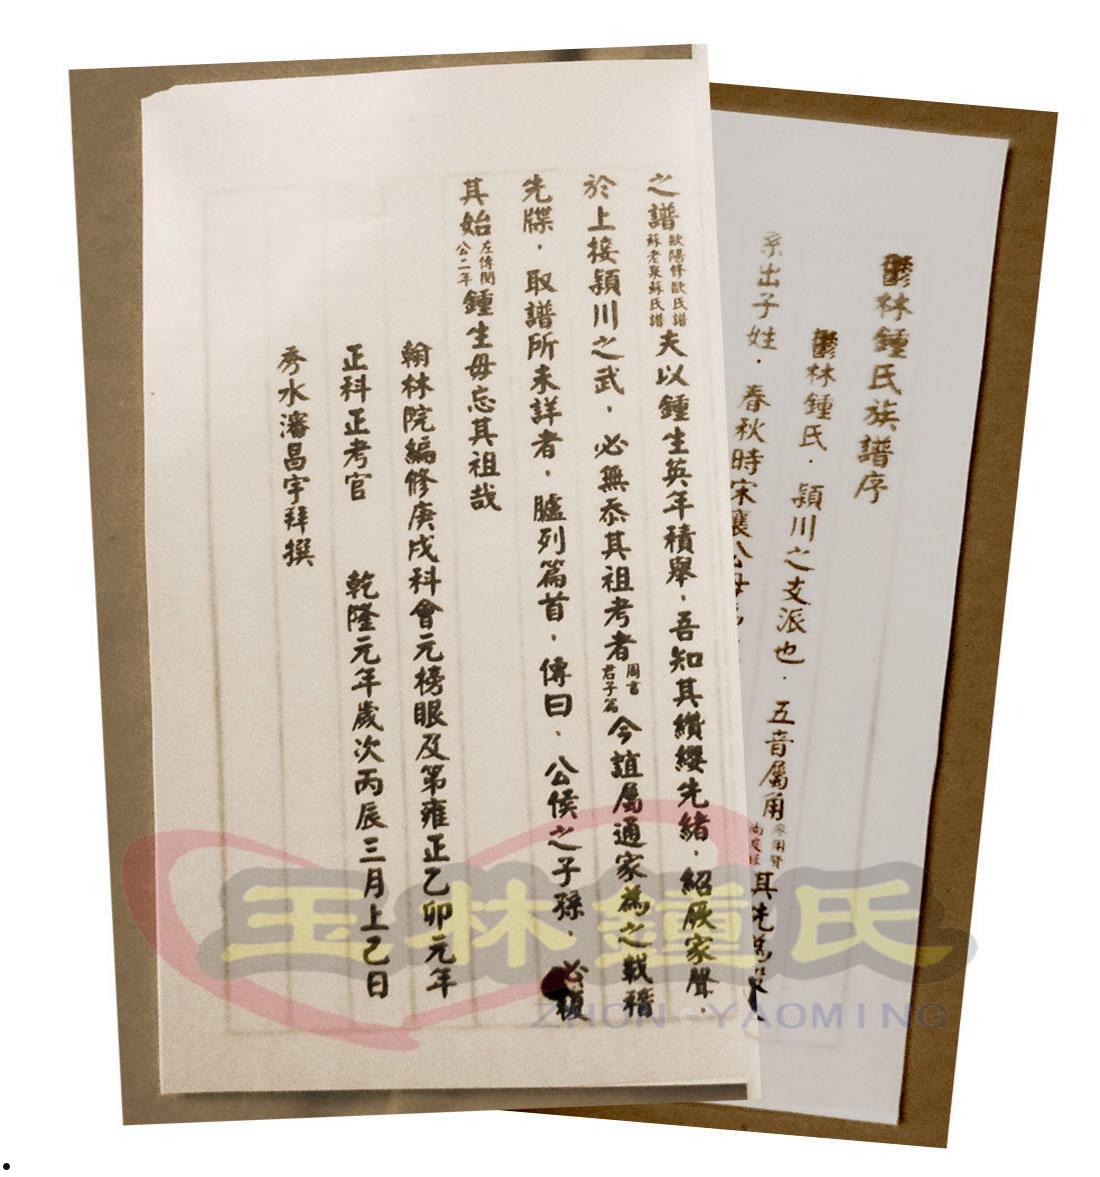 鬱林鍾氏族譜序
鬱林鍾氏．穎川之支派也．五音屬角其先
系出子姓．春秋時宋襄公母
之譜歐陽修歐氏譜蘇老泉蘇氏譜夫以鍾生英年積舉，吾知其纘纓先緒．紹厥家聲．
於上接穎川之武．必無忝其祖考者周書君子篇今誼屬通家為之載稽
先牒．取譜所未詳者，臚列篇首．傳曰．公侯之子孫．必復
其始左傳閔公二年鍾生毋忘其祖哉
翰林院編修庚戌科會元榜眼及第雍正乙卯元年
正科正考官 乾隆元年歲次丙辰三月上己日
秀水瀋昌宇拜撰
玉林鍾氏
ZHON YAOMING